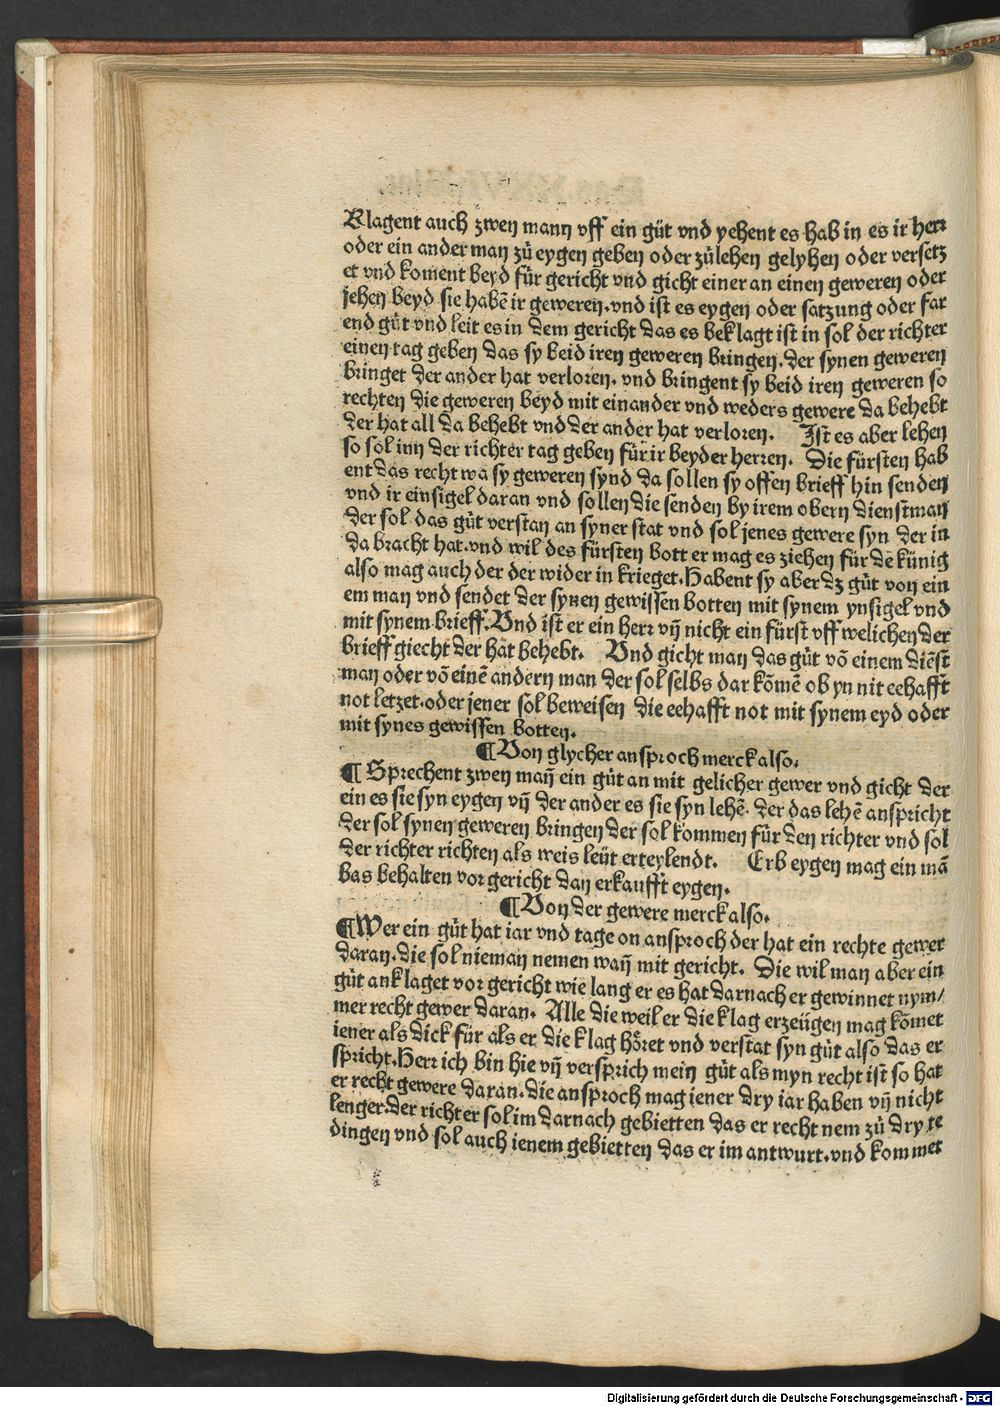 Klagent auch zwen mann vff ein güt vnd yehent es hab in es ir herr
oder ein ander man zü eygen geben oder zülehen gelyhen oder versetz
et vnd koment beyd für gericht vnd gicht einer an einen geweren oder
jehen beyd sie habē ir geweren. vnd ist es eygen oder satzung oder far
end güt vnd leit es in dem gericht das es beklagt ist in sol der richter
einen tag geben das sy beid iren geweren bringen. der synen geweren
bringet der ander hat verloren. vnd bringent sy beid iren geweren so
rechten die geweren beyd mit einander vnd weders gewere da behebt
der hat all da behebt vnd der ander hat verloren. Ist es aber lehen
so sol inn der richter tag geben für ir beyder herren. Die fürsten hab
ent das recht wa sy geweren synd da sollen sy offen brieff hin senden
vnd ir einsigel daran vnd sollen die senden by irem obern dienstman
der sol das güt verstan an syner stat vnd sol jenes gewere syn der in
da bracht hat. vnd wil des fürsten bott er mag es ziehen für dē künig
also mag auch der der wider in krieget. Habent sy aber dz güt von ein
em man vnd sendet der synen gewissen botten mit synem ynsigel vnd
mit synem brieff. Vnd ist er ein herr vn̄ nicht ein fürst vff welichen der
brieff giecht der hat behebt. Vnd gicht man das güt vō einem diēst
man oder vō einē andern man der sol selbs dar kōmē ob yn nit eehafft
not letzet. oder jener sol beweisen die eehafft not mit synem eyd oder
mit synes gewissen botten.
¶ Von glycher ansproch merck also.
¶ Sprechent zwen man̄ ein güt an mit gelicher gewer vnd gicht der
ein es sie syn eygen vn̄ der ander es sie syn lehē. der das lehē anspricht
der sol synen geweren bringen der sol kommen für den richter vnd sol
der richter richten als weis leüt erteylendt. Erb eygen mag ein mā
bas behalten vor gericht dan erkaufft eygen.
¶ Von der gewere merck also.
¶ Wer ein güt hat iar vnd tage on ansproch der hat ein rechte gewer
daran. die sol nieman nemen wan̄ mit gericht. Die wil man aber ein
güt anklaget vor gericht wie lang er es hat darnach er gewinnet nym/
mer recht gewer daran. Alle die weil er die klag erzeügen mag kōmet
iener als dick für als er die klag höret vnd verstat syn güt also das er
spricht. Herr ich bin hie vn̄ versprich mein güt als myn recht ist so hat
er recht gewere daran. die ansproch mag iener dry iar haben vn̄ nicht
lenger. der richter sol im darnach gebietten das er recht nem zü dry te
dingen vnd sol auch ienem gebietten das er im antwurt. vnd kommet
Digitalisierung gefördert durch die Deutsche Forschungsgemeinschaft - DFG